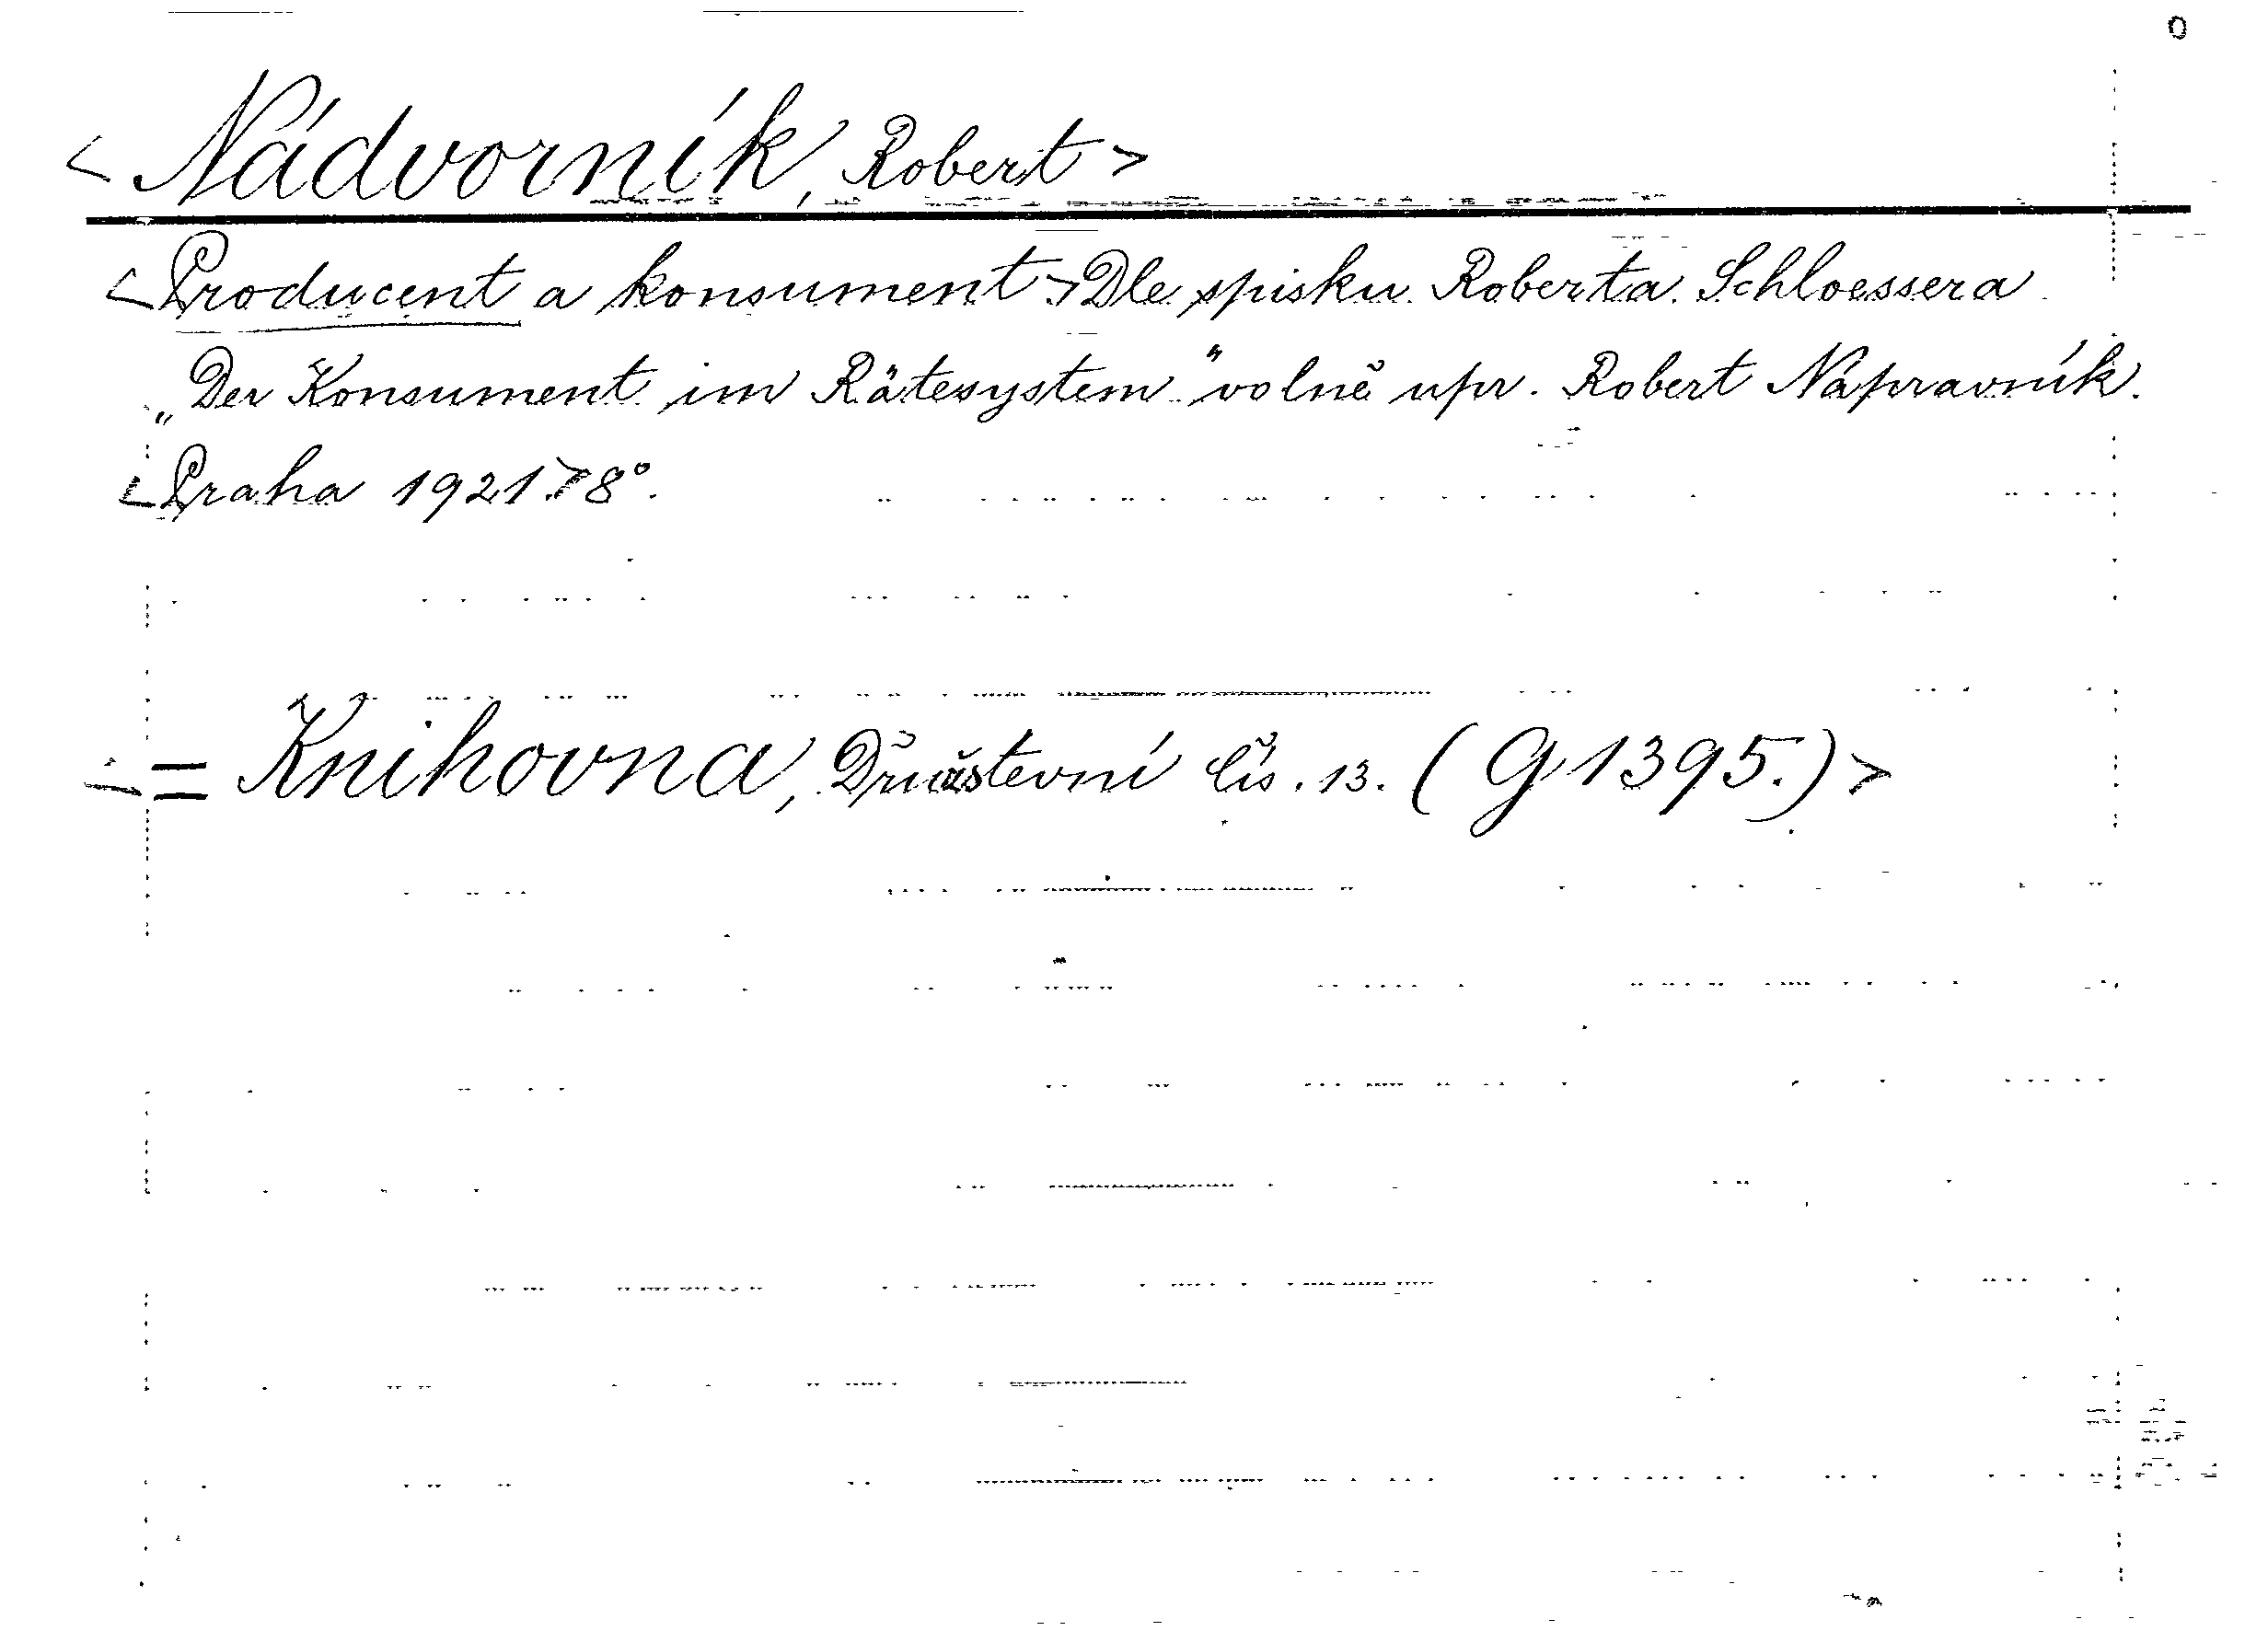 < Nádvorník, Robert >
< Producent a konsument > Dle spisku Roberta Schloessera
„Der Konsument im Rätesystem" volně upr. Robert Nápravník.
< Praha 1921. > 8°.
< = Knihovna, Družstevní čís. 13. (G 1395.) >